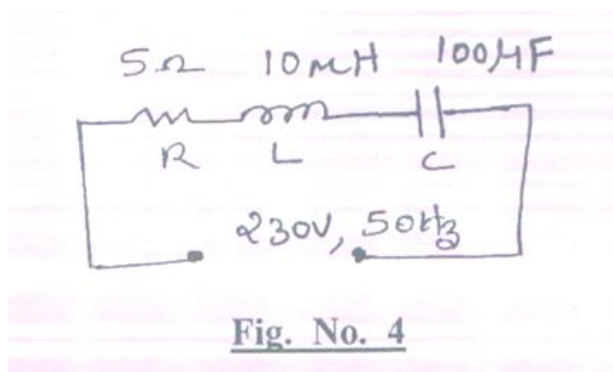 5Ω 10mH 100μF
R L C
230V, 50Hz
Fig. No. 4